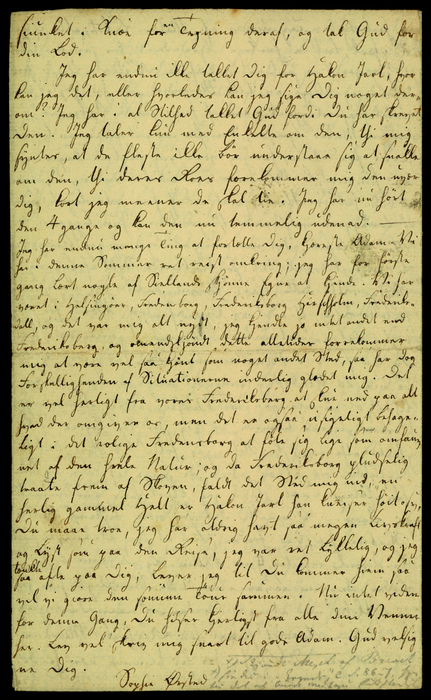 siunket. Knæ for en Tegning deraf, og tak Gud for
din Lod.
Jeg har endnu ikke takket Dig for Hakon Jarl, hvor
kan jeg det, eller hvorledes kan jeg sige Dig noget der-
om? Jeg har i Stilhed takket Gud fordi Du har skrevet
den. Jeg taler kun med Enkelte om den, thi mig
synes, at de fleste ikke bör understaae sig at snakke
om den, thi deres Roes forekommer mig den
Dig, kort jeg meener de skal tie. Jeg har nu hört
den 4 gange og kan den nu temmelig udenad.
Jeg har endnu mange ting at fortælle Dig, kjereste Adam. Vi
har i denne Sommer ret reist omkring; jeg har for förste
gang lært nogle af Siellands skjönne Egne at kjende. Vi har
været i Helsingöer, Fredensborg, Frederiksborg Hirschholm, Frederiks-
og det var mig alt nyt, jeg kjendte jo intet andet end
Frederiksberg, og omendskjöndt dette altetider forekommer
mig at være vel saa skjönt som noget andet Sted, saa har dog
Forskjelligheden af Situationerne inderlig glædet mig. Det
er vel herligt fra vores Frederiksberg at see ned paa alt
hvad der omgiver os, men det er ogsaa usigeligt behage-
ligt i det rolige Fredensborg at föle sig lige som omfavn
net af den hele Natur; og da Frederiksborg pludselig
traatte frem af Skoven, faldt det Sted mig ind, en
herlig gammel Helt er Hakon Jarl han kneiser höit op,
Du maae troe, jeg har aldrig havt saa megen Livskraft
og Lyst som paa den Reise, jeg var ret lykkelig, og jeg
tænkte saa ofte paa Dig, lever jeg til Du kommer hjem saa
vil vi gjöre den samme Tour sammen. Nu intet videre
for denne Gang, Du hilses hjertligst fra alle dine Venner
her. Lev vel skriv mig snart til gode Adam. Gud velsig-
ne Dig.
Sophie Ørsted